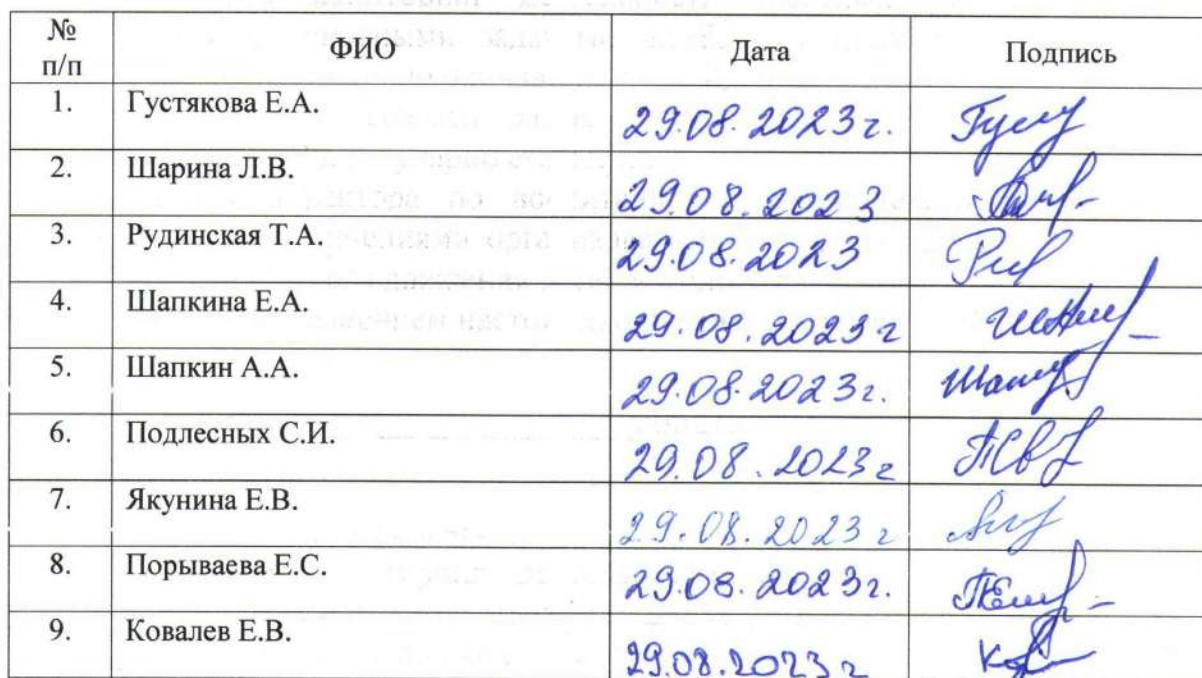 № п/п ФИО Дата Подпись
1. Густякова Е.А. 29.08.2023г.
2. Шарина Л.В. 29.08.2023
3. Рудинская Т.А. 29.08.2023
4. Шапкина Е.А. 29.08.2023г
5. Шапкин А.А. 29.08.2023г.
6. Подлесных С.И. 29.08.2023г
7. Якунина Е.В. 29.08.2023г
8. Порываева Е.С. 29.08.2023г.
9. Ковалев Е.В. 29.08.2023г